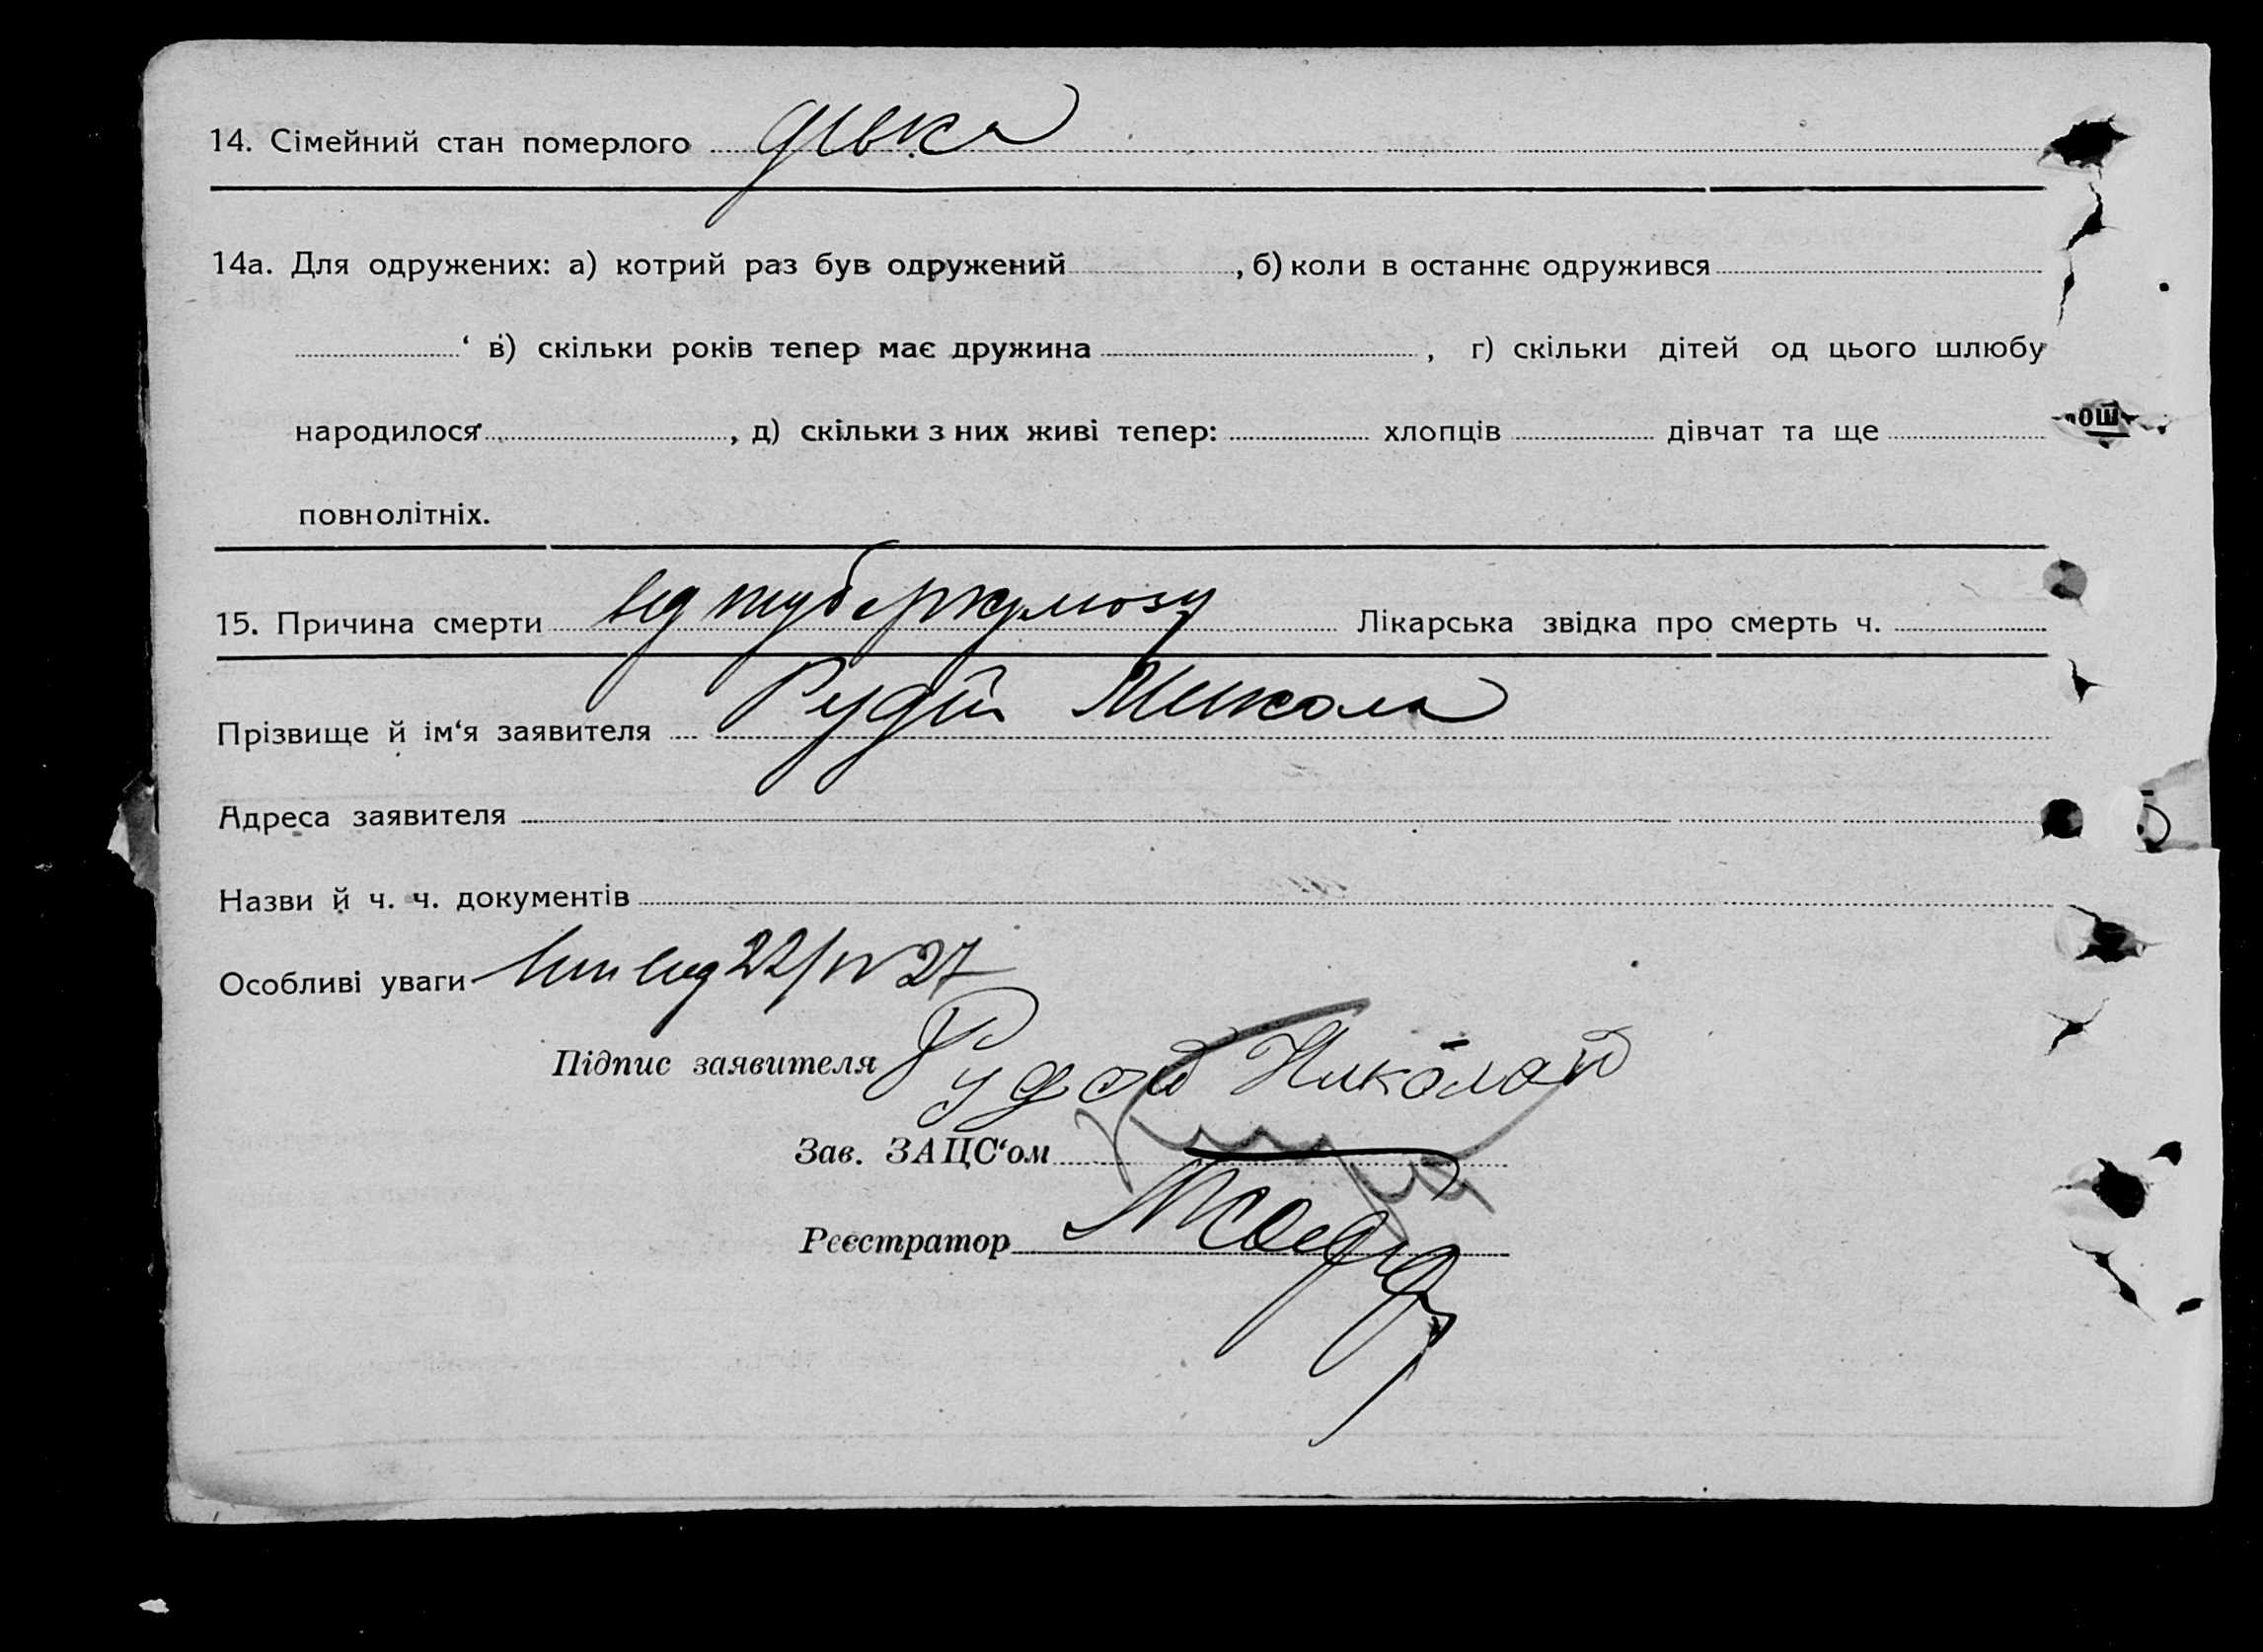 14. Сімейний стан померлого дівка
14а. Для одружених: а) котрий раз був одружений , б) коли в останнє одружився
‘ в) скільки років тепер має дружина , г) скільки дітей од цього шлюбу
народилося , д) скільки з них живі тепер: хлопців дівчат та ще
повнолітніх.
15. Причина смерти від туберкульозу Лікарська звідка про смерть ч.
Прізвище й ім‘я заявителя Рудій Микола
Адреса заявителя
Назви й ч. ч. документів
Особливі уваги від 22/IV 27
Підпис заявителя Рудой Николай
Зав. ЗАЦС‘ом
Реєстратор